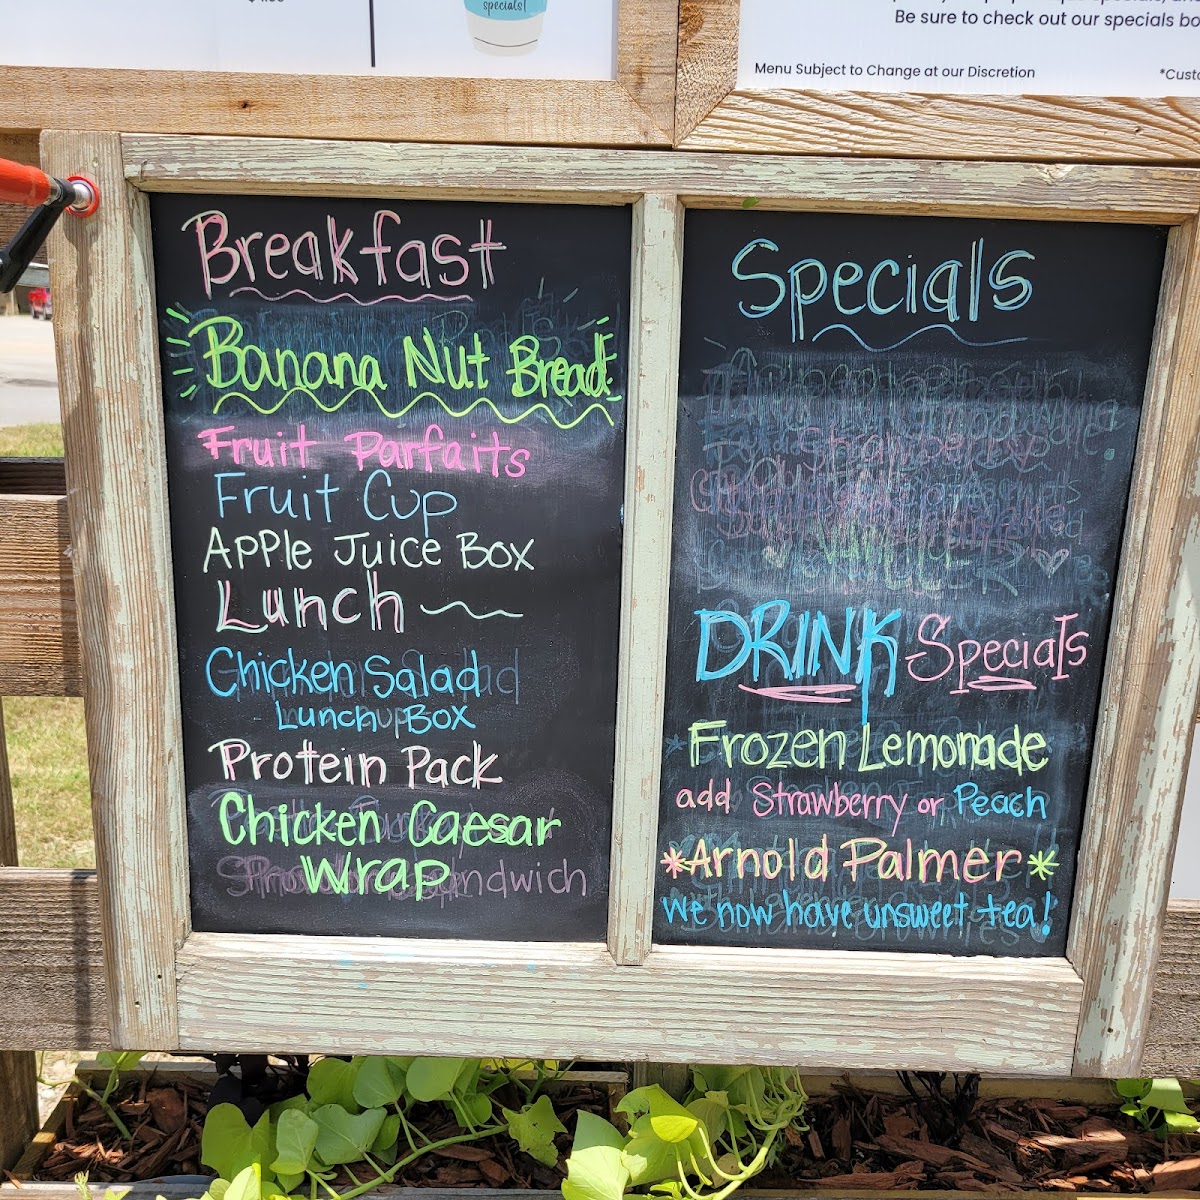 specials!
Be sure to check out our specials
Menu Subject to Change at our Discretion
Breakfast
Banana Nut Bread
Fruit Parfaits
Fruit Cup
Apple Juice Box
Lunch
Chicken Salad
Lunch Box
Protein Pack
Chicken Caesar
Wrap
Specials
DRINK Specials
Frozen Lemonade
add Strawberry or Peach
*Arnold Palmer*
we now have unsweet tea!